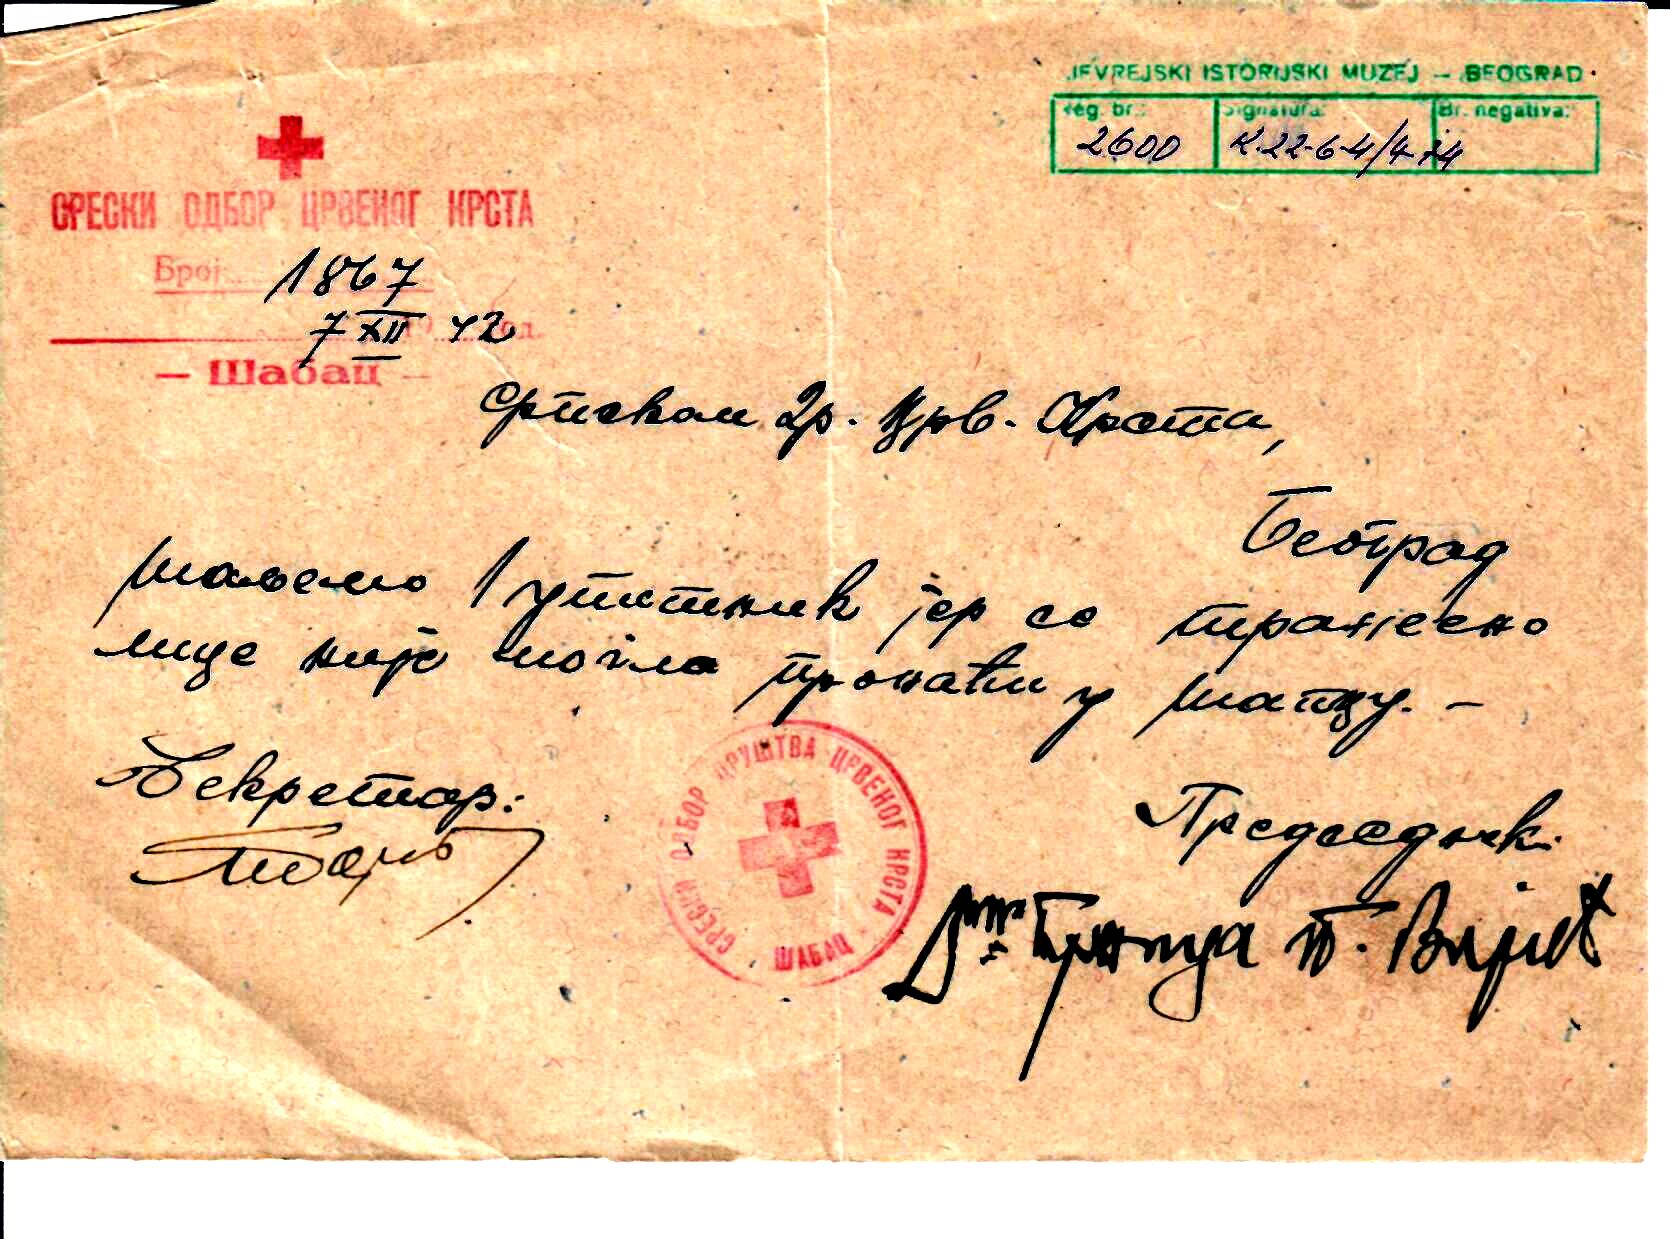 JEVREJSKI ISTORIJSKI MUZEJ — BEOGRAD
Reg. br.: Signatura: Br. negativa:
2600 K.22-6-4/4-14
СРЕСКИ ОДБОР ЦРВЕНОГ КРСТА
Број: 1867
7 XII 42
— Шабац —
Српском др. Црв. Крста,
Београд
Шаљемо 1 упитник јер се тражено
лице није могло пронаћи у Шапцу. —
Секретар:
Председник:
СРЕСКИ ОДБОР ДРУШТВА ЦРВЕНОГ КРСТА
ШАБАЦ